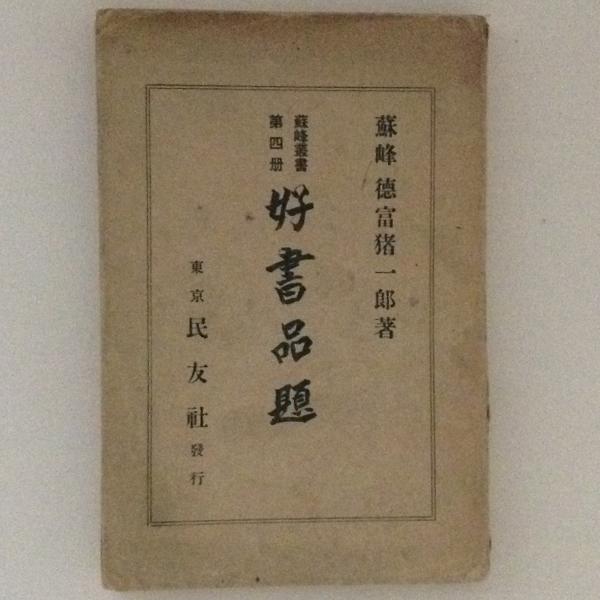 蘇峰 德富猪一郎著
蘇峰叢書
第四册
好書品題
東京 民友社 發行